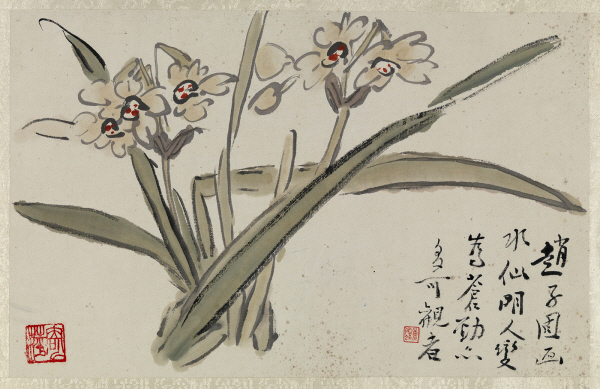 趙子固画
水仙明人變
為蒼勁亦
多可觀者